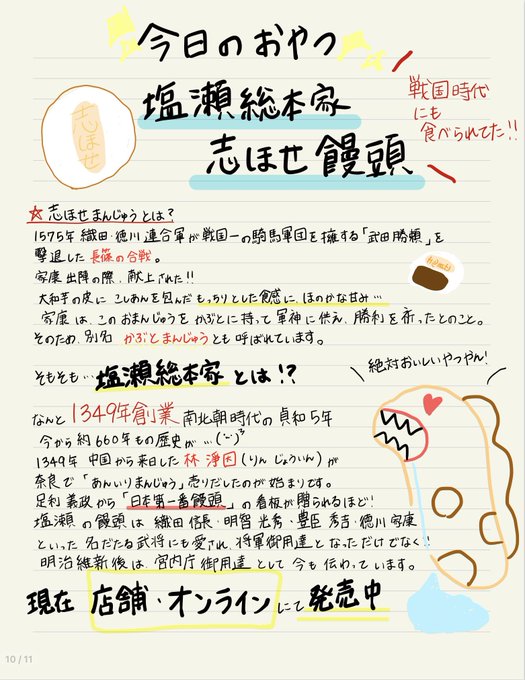 今日のおやつ
塩瀬総本家
志ほせ饅頭
戦国時代
にも
食べられてた!!
志ほせ
☆志ほせまんじゅうとは?
1575年 織田・徳川連合軍が戦国一の騎馬軍団を擁する「武田勝頼」を
撃退した長篠の合戦。
家康出陣の際、献上された!!
大和芋の皮に こしあんを包んだ もっちりとした食感に、ほのかな甘み…
家康は、このおまんじゅうを かぶとに持って 軍神に供え、勝利を祈ったとのこと。
そのため、別名 かぶとまんじゅうとも呼ばれています。
そもそも…塩瀬総本家 とは!?
絶対おいしいやつやん!
なんと 1349年創業 南北朝時代の 貞和5年
今から約660年もの歴史が…
1349年 中国から来日した 林 淨因(りん じょういん)が
奈良で「あんいりまんじゅう」売りだしたのが始まりです。
足利義政から「日本第一番饅頭」の看板が贈られるほど!
塩瀬の饅頭は 織田信長・明智光秀・豊臣秀吉・徳川家康
といった 名だたる武将にも愛され、将軍御用達となっただけでなく!
明治維新後は、宮内庁御用達として 今も伝わっています。
現在 店舗・オンラインにて 発売中
10 / 11